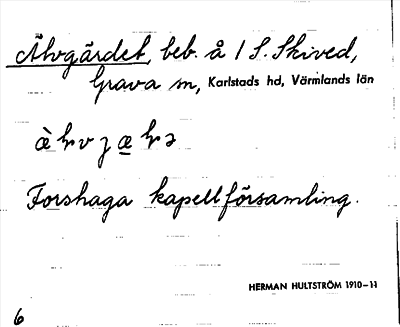 Älvgärdet, beb. å 1 S. Skived,
Grava sn, Karlstads hd, Värmlands län
Forshaga kapellförsamling.
HERMAN HULTSTRÖM 1910-11
6